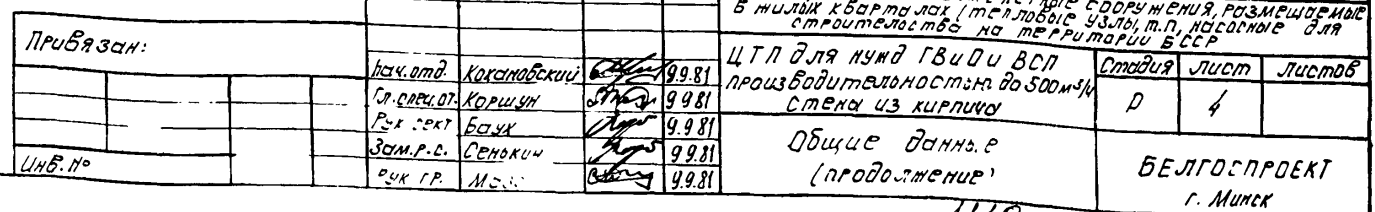 сооружения, размещаемые
в жилых кварталах (тепловые узлы, т.п, насосные для
строительства на территории БССР
Привязан:
Инв.№
Нач.отд. Кохановский 9.9.81
Гл.спец.от. Коршун 9.9.81
Рук сект Баух 9.9.81
Зам.р.с. Сенькин 9.9.81
Рук гр. 9.9.81
ЦТП для нужд ГВиОи ВСП
производительностью до 500м³/ч
стена из кирпича
Стадия Лист Листов
Р 4
Общие данные
(продолжение)
БЕЛГОСПРОЕКТ
г. Минск